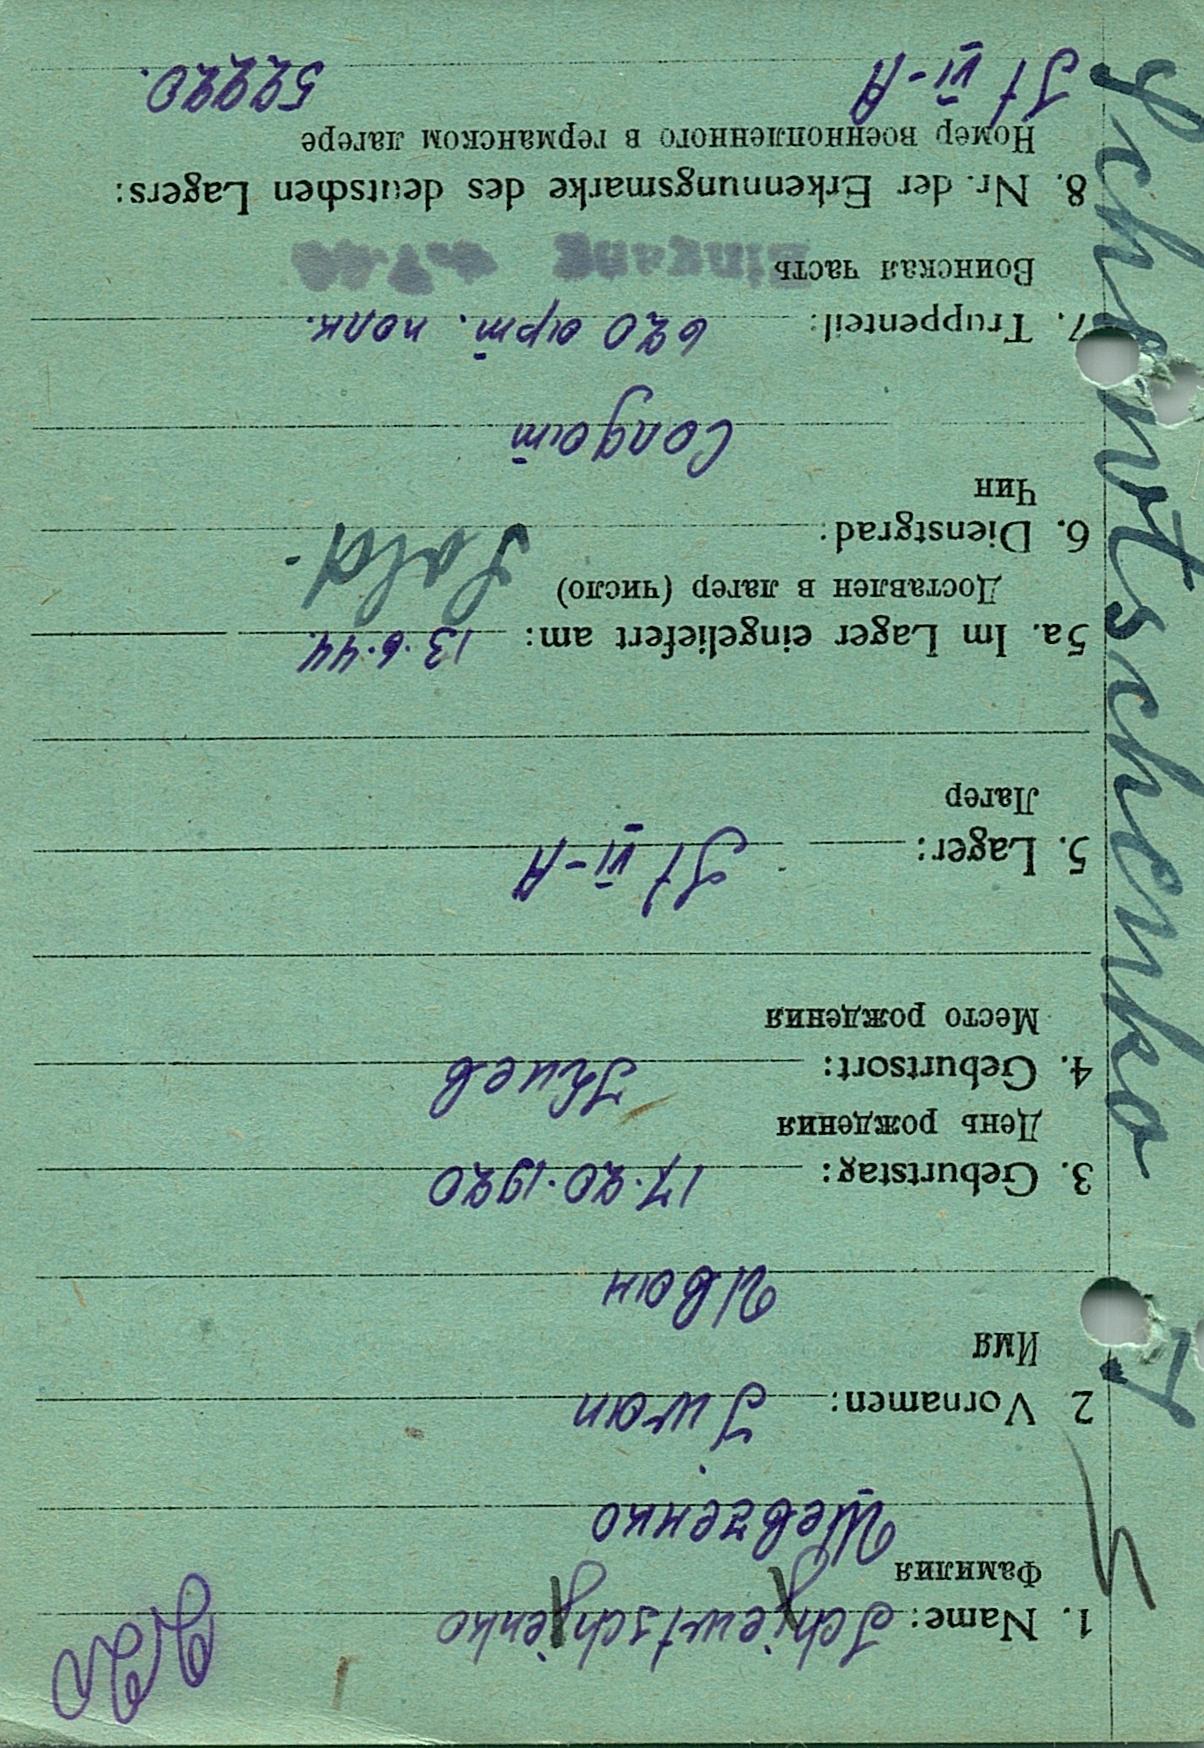 1. Name: Schjewtschjenko
Фамилия
Шевченко
2 Vornamen: Iwan
Имя
Иван
3. Geburtstag: 17.20.1920
День рождения
4. Geburtsort: Киев
Место рождения
5. Lager: St VI-A
Лагер
5a. Im Lager eingeliefert am: 13.6.44.
Доставлен в лагер (число)
6. Dienstgrad: Sold.
Чин
Солдат
7. Truppenteil: 620 арт. полк.
Воинская часть
Eingang
8. Nr. der Erkennungsmarke des deutschen Lagers:
Номер военнопленного в германском лагере
St VI-A 52220.
Schewtschenko I